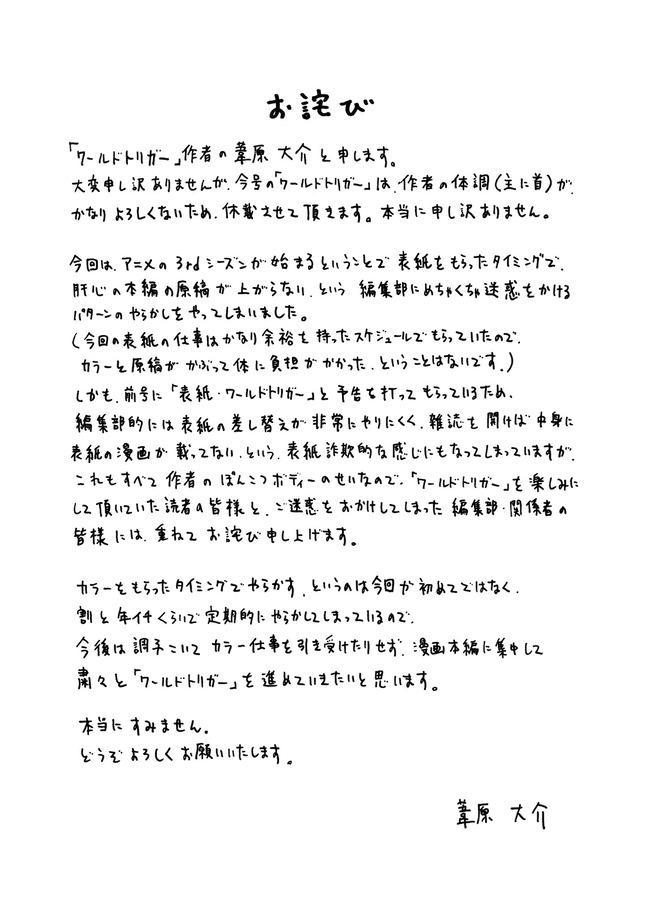 お詫び
「ワールドトリガー」作者の葦原 大介と申します。
大変申し訳ありませんが、今号の「ワールドトリガー」は、作者の体調(主に首)が、
かなりよろしくないため、休載させて頂きます。本当に申し訳ありません。
今回は、アニメの3rdシーズンが始まるということで表紙をもらったタイミングで、
肝心の本編の原稿が上がらない、という 編集部にめちゃくちゃ迷惑をかける
パターンのやらかしをやってしまいました。
(今回の表紙の仕事はかなり余裕を持ったスケジュールでもらっていたので、
カラーと原稿がかぶって体に負担がかかった、ということはないです。)
しかも、前号に「表紙・ワールドトリガー」と予告を打ってもらっているため、
編集部的には表紙の差し替えが非常にやりにくく、雑誌を開けば中身に
表紙の漫画が載ってない、という、表紙詐欺的な感じにもなってしまっていますが、
これもすべて作者のぽんこつボディーのせいなので、「ワールドトリガー」を楽しみに
して頂いていた読者の皆様と、ご迷惑をおかけしてしまった 編集部・関係者の
皆様には、重ねてお詫び申し上げます。
カラーをもらったタイミングでやらかす、というのは今回が初めてではなく、
割と年イチくらいで定期的にやらかしてしまっているので、
今後は調子こいてカラー仕事を引き受けたりせず、漫画本編に集中して
粛々と「ワールドトリガー」を進めていきたいと思います。
本当にすみません。
どうぞよろしくお願いいたします。
葦原 大介